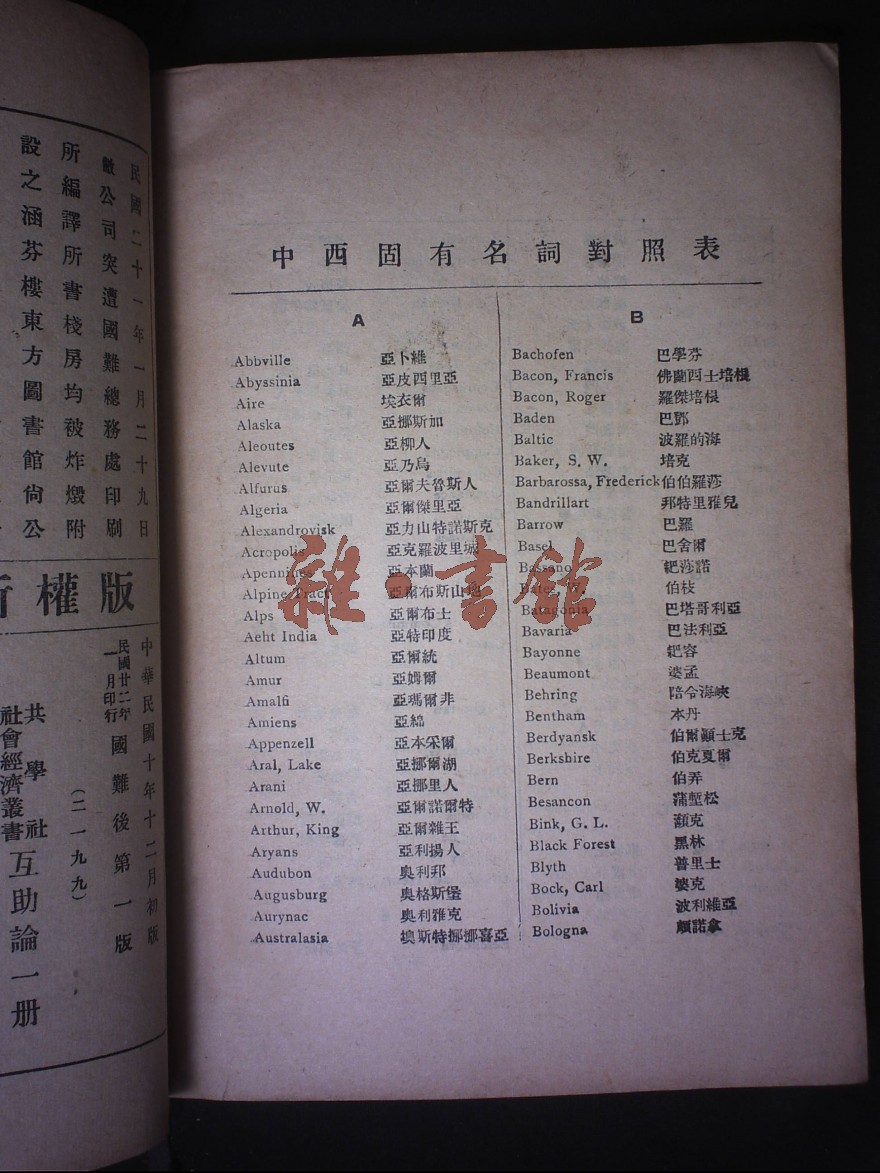 中西固有名詞對照表
A
Abbville 亞卜維
Abyssinia 亞皮西里亞
Aire 埃衣爾
Alaska 亞挪斯加
Aleoutes 亞柳人
Alevute 亞乃烏
Alfurus 亞爾夫魯斯人
Algeria 亞爾傑里亞
Alexandrovisk 亞力山特諾斯克
Acropolis 亞克羅波里城
Apennines 亞本蘭
Alpine Tract 亞爾布斯山地
Alps 亞爾布士
Aeht India 亞特印度
Altum 亞爾統
Amur 亞姆爾
Amalfi 亞瑪爾非
Amiens 亞綿
Appenzell 亞本采爾
Aral, Lake 亞挪爾湖
Arani 亞挪里人
Arnold, W. 亞爾諾爾特
Arthur, King 亞爾雜王
Aryans 亞利揚人
Audubon 奧利邦
Augusburg 奧格斯堡
Aurynac 奧利雅克
Australasia 墺斯特挪挪喜亞
B
Bachofen 巴學芬
Bacon, Francis 佛蘭西士培根
Bacon, Roger 羅傑培根
Baden 巴鄧
Baltic 波羅的海
Baker, S. W. 培克
Barbarossa, Frederick 伯伯羅莎
Bandrillart 邦特里雅兒
Barrow 巴羅
Basel 巴舍爾
Bassano 鈀莎諾
Bates, W. 伯枝
Batagonia 巴塔哥利亞
Bavaria 巴法利亞
Bayonne 鈀容
Beaumont 婆孟
Behring 陪令海峽
Bentham 本丹
Berdyansk 伯爾顯士克
Berkshire 伯克夏爾
Bern 伯弄
Besancon 蒲塹松
Bink, G. L. 克
Black Forest 黑林
Blyth 普里士
Bock, Carl 婆克
Bolivia 波利維亞
Bologna 諾拿
民國二十一年一月二十九日
敝公司突遭國難總務處印刷
所編譯所書棧房均被炸燬附
設之涵芬樓東方圖書館尙公
版權所
中華民國十年十二月初版
民國廿二年一月印行 國難後第一版
(二一九九)
共學社
社會經濟叢書
互助論一册
雜·書館